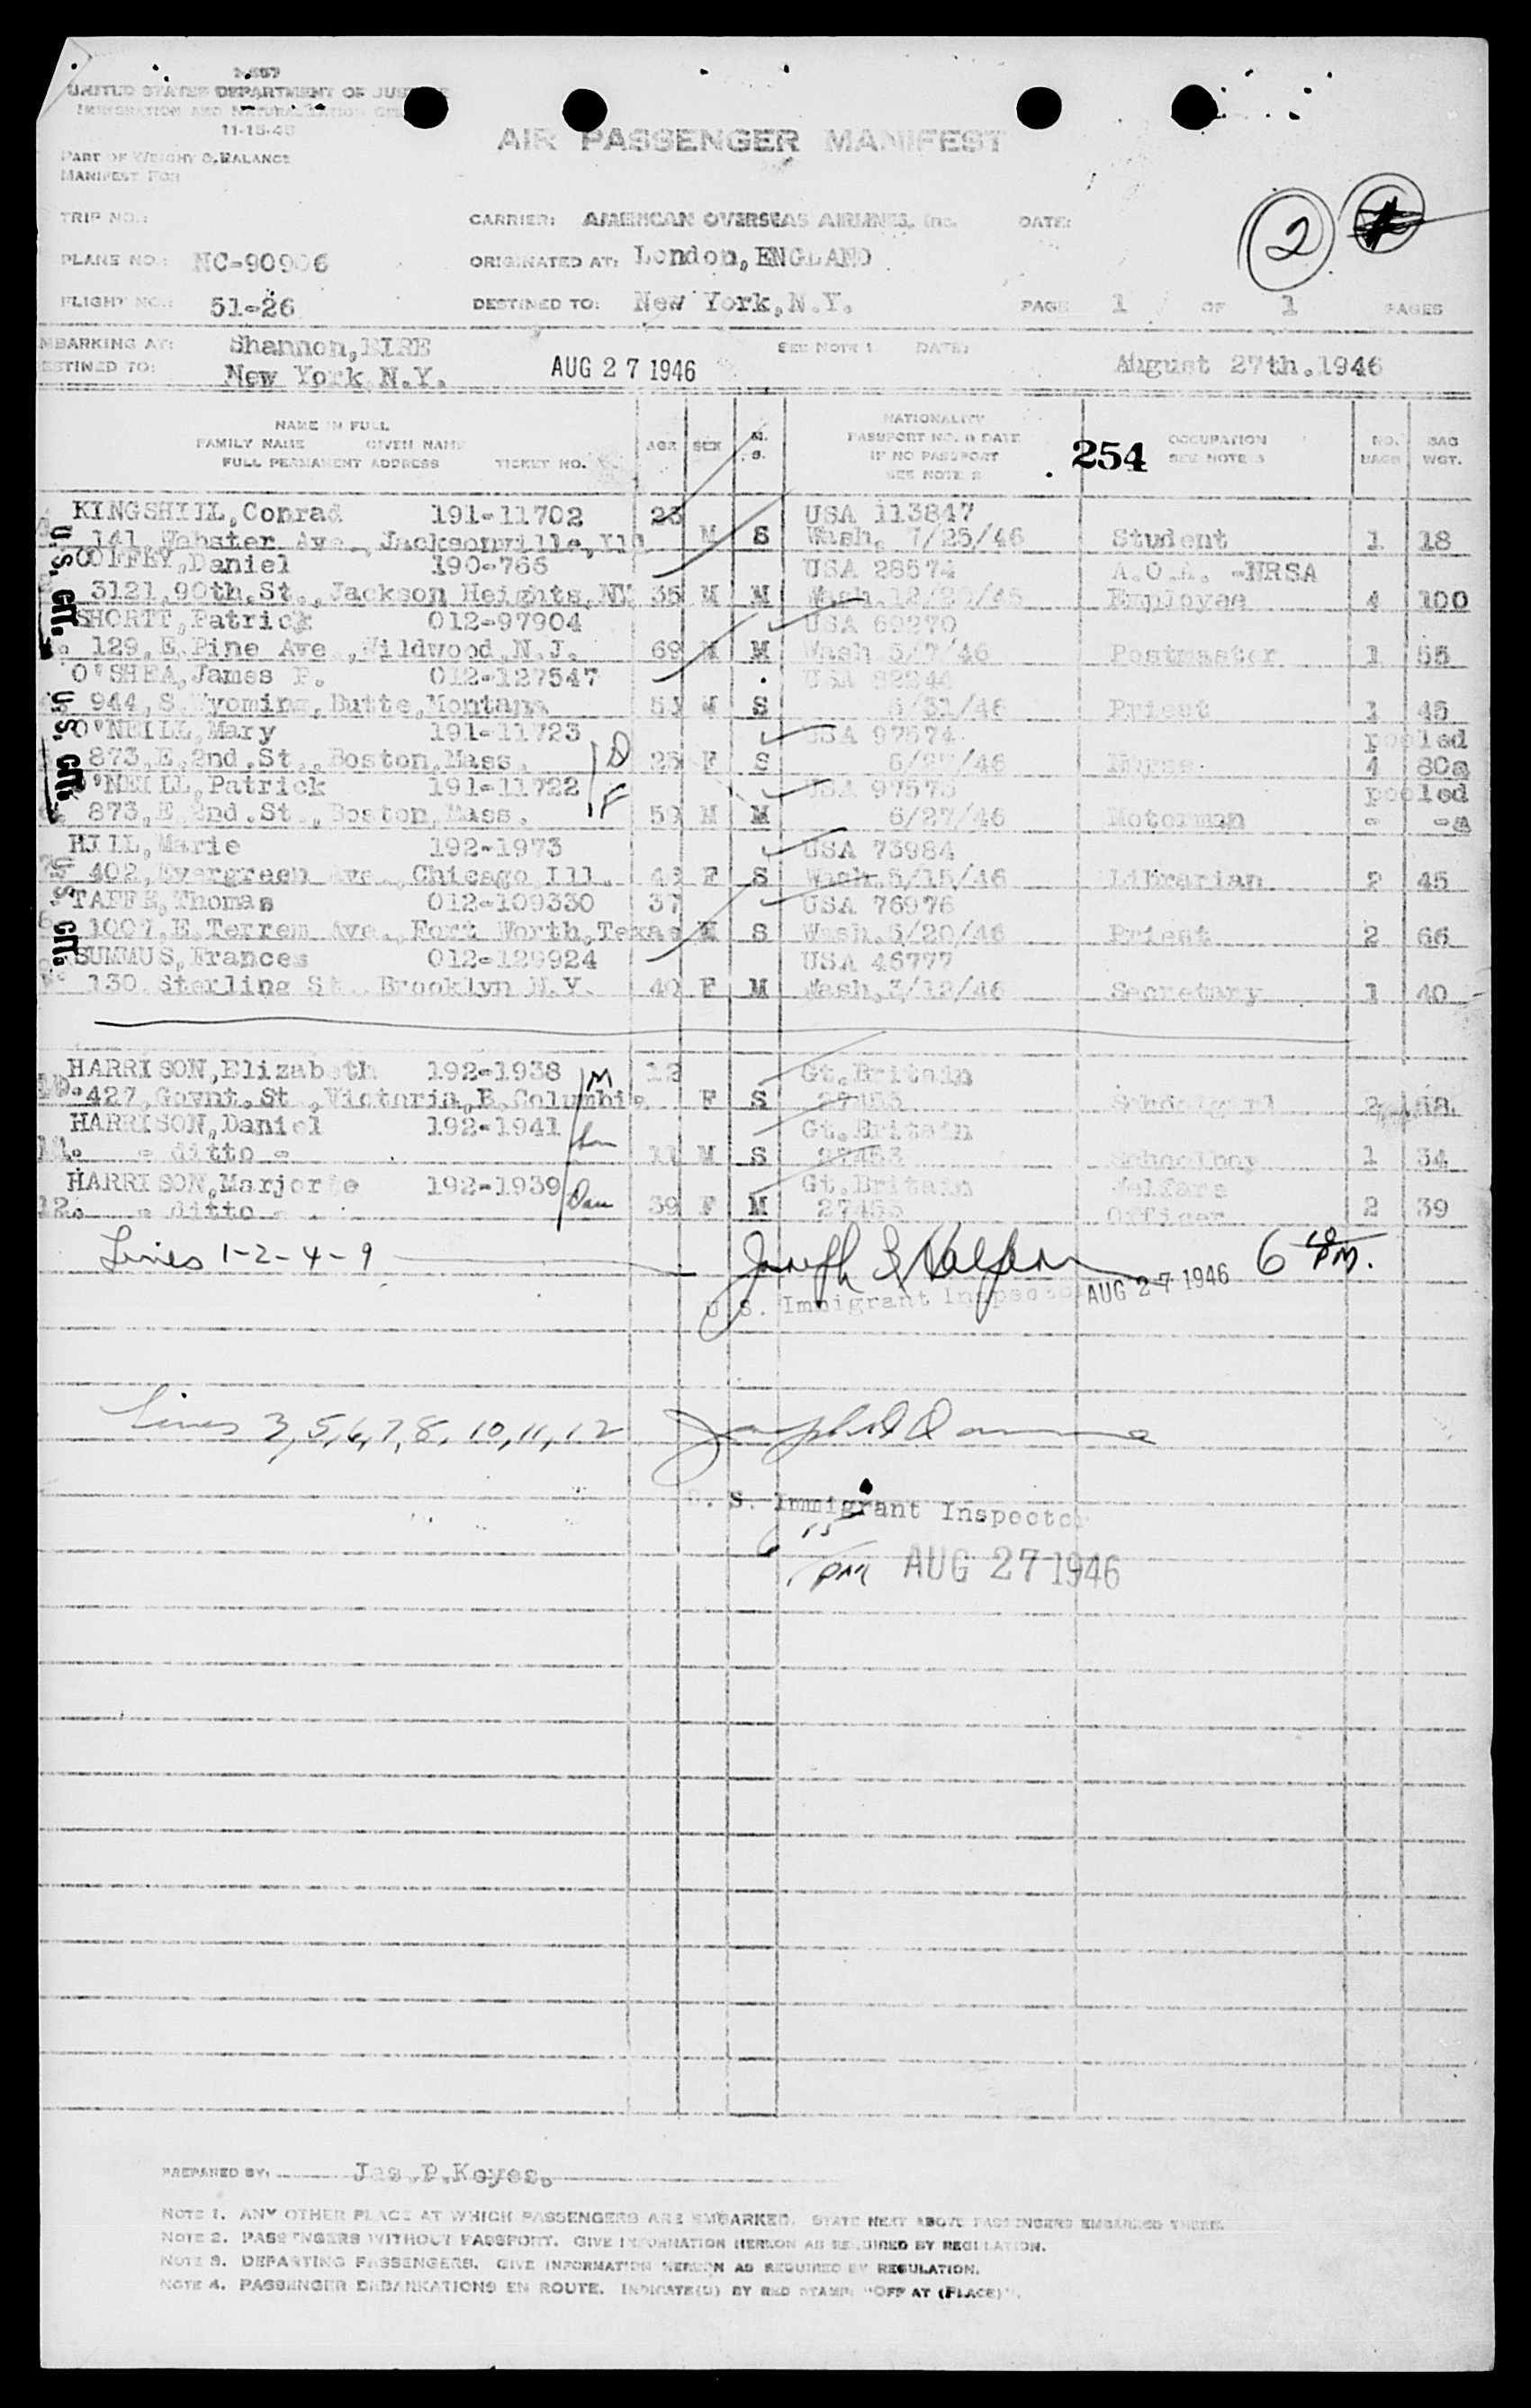 I-557
UNITED STATES DEPARTMENT OF JUSTICE
IMMIGRATION AND NATURALIZATION
11-15-45
PART OF WEIGHT & BALANCE
MANIFEST FOR
AIR PASSENGER MANIFEST
TRIP NO.:
CARRIER: AMERICAN OVERSEAS AIRLINES, Inc.
DATE:
2
PLANE NO.: NC-90906
ORIGINATED AT: London, ENGLAND
FLIGHT NO.: 51-26
DESTINED TO: New York, N.Y.
PAGE 1 OF 1 PAGES
EMBARKING AT: Shannon, EIRE
SEE NOTE 1 DATE:
DESTINED TO: New York N.Y.
AUG 27 1946
August 27th.1946
NAME IN FULL
FAMILY NAME GIVEN NAME
FULL PERMANENT ADDRESS TICKET NO.
AGE SEX M. S.
NATIONALITY
PASSPORT NO. & DATE
IF NO PASSPORT
SEE NOTE 2
254
OCCUPATION
SEE NOTE 3
NO. BAGS
BAG WGT.
U.S. CIT.
U.S. CIT.
U.S. CIT.
KINGSHILL, Conrad 191-11702 23 USA 113847
141, Webster Ave., Jacksonville, Ill M S Wash. 7/25/46 Student 1 18
COFFEY, Daniel 190-766 USA 28574 A.O.A. -NRSA
3121, 90th. St., Jackson Heights, NY 35 M M Wash. Employee 4 100
SHORTT, Patrick 012-97904 USA 69270
129, E. Pine Ave., Wildwood, N.J. 69 M M Wash 5/7/46 Postmaster 1 55
O'SHEA, James P. 012-127547 USA
944, S. Wyoming, Butte, Montana M S 5/31/46 Priest 1 45
O'NEILL, Mary 191-11723 USA 97574 pooled
873, E. 2nd. St., Boston, Mass. D 25 F S 6/27/46 Nurse 4 80
O'NEILL, Patrick 191-11722 USA 97573 pooled
873, E. 2nd. St., Boston, Mass. F 59 M M 6/27/46 Motorman - -
HILL, Marie 192-1973 USA 73984
402, Evergreen Ave., Chicago Ill. F S Wash. 5/15/46 Librarian 2 45
TAFFE, Thomas 012-109330 37 USA 76976
1007, E. Terrem Ave., Fort Worth, Texas M S Wash. 5/20/46 Priest 2 66
SUMMUS, Frances 012-129924 USA 46777
130 Sterling St. Brooklyn N.Y. 40 F M Wash, 3/12/46 Secretary 1 40
HARRISON, Elizabeth 192-1938 12 Gt. Britain
10. 427, Govnt. St., Victoria, B. Columbia M F S 27453 Schoolgirl 2
HARRISON, Daniel 192-1941 Gt. Britain
11. - ditto - 11 M S 27453 Schoolboy 1 34
HARRISON, Marjorie 192-1939 Gt. Britain Welfare
12. - ditto - 39 F M 27453 Officer 2 39
Lines 1-2-4-9
6 PM.
U.S. Immigrant Inspector AUG 27 1946
Lines 3,5,6,7,8,10,11,12
U. S. Immigrant Inspector
6 15 PM AUG 27 1946
PREPARED BY: Jas.P.Keyes.
NOTE 1. ANY OTHER PLACE AT WHICH PASSENGERS ARE EMBARKED. STATE NEXT ABOVE PASSENGERS EMBARKED THERE.
NOTE 2. PASSENGERS WITHOUT PASSPORT. GIVE INFORMATION HEREON AS REQUIRED BY REGULATION.
NOTE 3. DEPARTING PASSENGERS. GIVE INFORMATION HEREON AS REQUIRED BY REGULATION.
NOTE 4. PASSENGER DEBARKATIONS EN ROUTE. INDICATE(D) BY RED STAMP: "OFF AT (PLACE)".